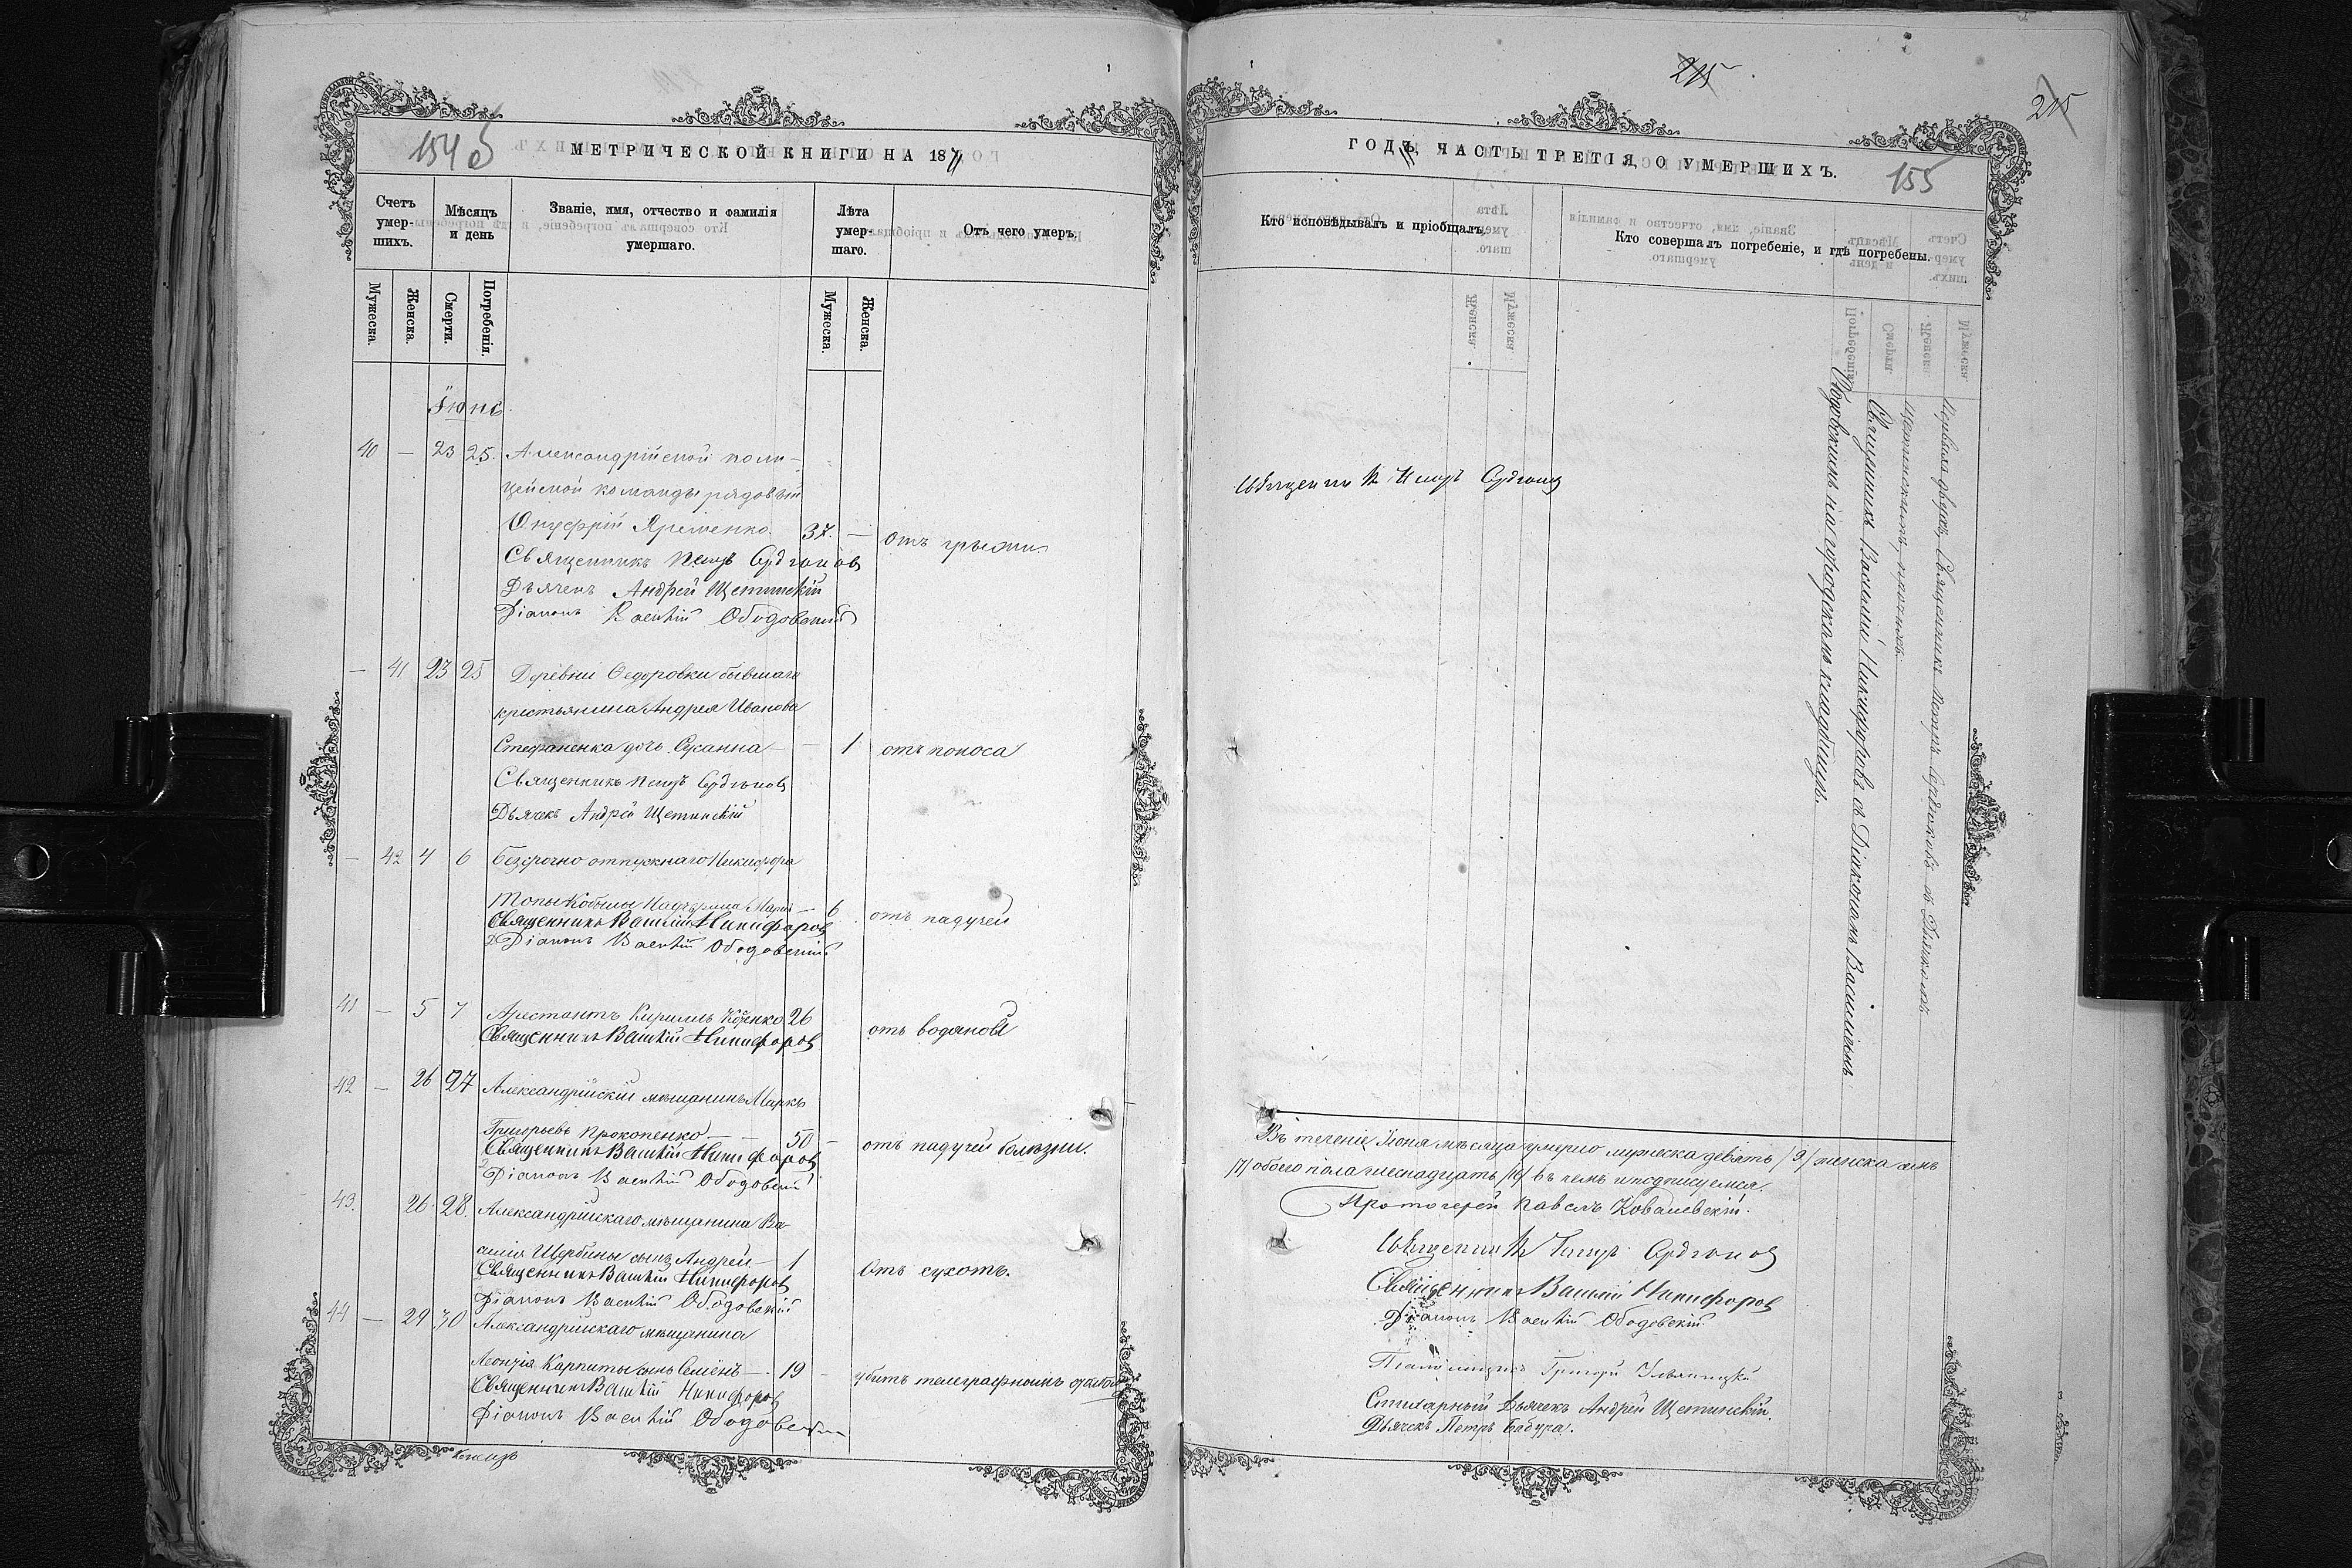 154 б
МЕТРИЧЕСКОЙ КНИГИ НА 1871
Счетъ умер-шихъ.
Мѣсяцъ и день
Званіе, имя, отчество и фамилія умершаго.
Лѣта умер-шаго.
Отъ чего умеръ.
Мужеска.
Женска.
Смерти.
Погребенія.
Мужеска.
Женска.
Іюнь
40 — 23 25. Александрійской поли-
цейской команды рядовый
Онуфрій Яременко 37. — отъ грыжи
Священникъ Петръ Сердюковъ
Дьячекъ Андрей Щетинскій
Діаконъ Василій Ободовскій
— 41 23 25 Деревни Ѳедоровки бывшаго
крестьянина Андрея Иванова
Стефаненка дочь Сусанна — — 1 отъ поноса
Священникъ Петръ Сердюковъ
Дьячекъ Андрей Щетинскій
— 42 4 6 безсрочно отпускнаго Никифора
Марія — 6 отъ падучей
Священникъ Василій Никифоровъ
Діаконъ Василій Ободовскій
41 — 5 7 Арестантъ Кириллъ 26 отъ водяной
Священникъ Василій Никифоровъ
42 — 26 27 Александрійскій мѣщанинъ Марко
Григорьевъ Прокопенко — — 50 — отъ падучей болѣзни.
Священникъ Василій Никифоровъ
Діаконъ Василій Ободовскій
43. 26 28. Александрійскаго мѣщанина Ва-
силія Щербины сынъ Андрей — 1 Отъ сухотъ.
Священникъ Василій Никифоровъ
Діаконъ Василій Ободовскій
44 — 29 30 Александрійскаго мѣщанина
Леонтія Карпиты сынъ Семенъ — 19 — убитъ телеграфнымъ
Священникъ Василій Никифоровъ
Діаконъ Василій Ободовскій
215
215
155
ГОДЪ, ЧАСТЬ ТРЕТІЯ, О УМЕРШИХЪ.
Кто исповѣдывалъ и пріобщалъ.
Кто совершалъ погребеніе, и гдѣ погребены.
Священникъ Петръ Сердюковъ
Первыхъ двухъ, Священникъ Петръ Сердюковъ съ Дьячкомъ
Щетинскимъ, прочихъ
Священникъ Василій Никифоровъ съ Діакономъ Василіемъ
Ободовскимъ на городскомъ кладбищѣ.
Въ теченіе Іюня мѣсяца умерло мужеска девять /9/ женска семь
/7/ обоего пола шестнадцать /16/ въ чемъ и подписуемся.
Протоіерей Павелъ Ковалевскій.
Священникъ Петръ Сердюковъ
Священникъ Василій Никифоровъ
Діаконъ Василій Ободовскій
Григорій
Стихарный Дьячекъ Андрей Щетинскій.
Дьячекъ Петръ Бабура.